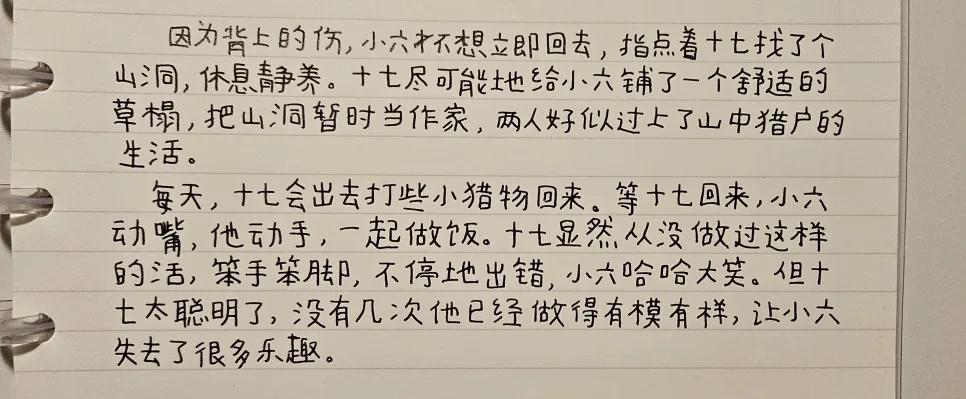 因为背上的伤，小六才不想立即回去，指点着十七找了个
山洞，休息静养。十七尽可能地给小六铺了一个舒适的
草榻，把山洞暂时当作家，两人好似过上了山中猎户的
生活。
每天，十七会出去打些小猎物回来。等十七回来，小六
动嘴，他动手，一起做饭。十七显然从没做过这样
的活，笨手笨脚，不停地出错，小六哈哈大笑。但十
七太聪明了，没有几次他已经做得有模有样，让小六
失去了很多乐趣。